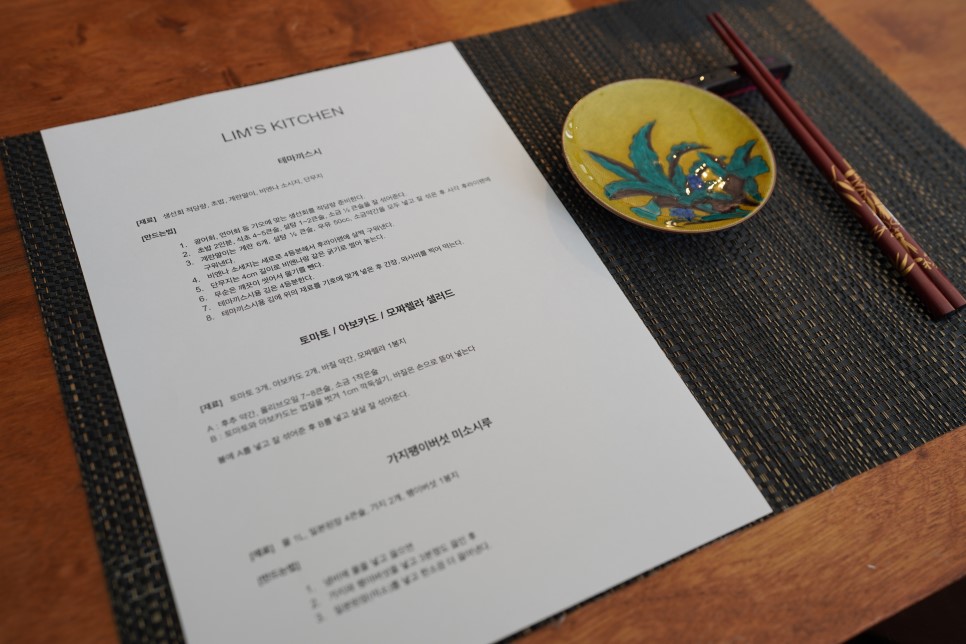 LIM'S KITCHEN
테마끼스시
[재료] 생선회 적당량, 초밥, 계란말이, 비엔나 소시지, 단무지
[만드는법]
1. 광어회, 연어회 등 기호에 맞는 생선회를 적당량 준비한다.
2. 초밥 2인분, 식초 4~5큰술, 설탕 1~2큰술, 소금 ½ 큰술을 잘 섞어둔다.
3. 계란말이는 계란 6개, 설탕 ½ 큰술, 우유 50cc, 소금약간을 모두 넣고 잘 섞은 후 사각 후라이팬에
구워낸다.
4. 비엔나 소세지는 세로로 4등분해서 후라이팬에 살짝 구워낸다.
5. 단무지는 4cm 길이로 비엔나랑 같은 굵기로 썰어 놓는다.
6. 무순은 깨끗이 씻어서 물기를 뺀다.
7. 테마끼스시용 김은 4등분한다.
8. 테마끼스시용 김에 위의 재료를 기호에 맞게 넣은 후 간장, 와사비를 찍어 먹는다.
토마토 / 아보카도 / 모짜렐라 샐러드
[재료] 토마토 3개, 아보카도 2개, 바질 약간, 모짜렐라 1봉지
A : 후추 약간, 올리브오일 7~8큰술, 소금 1작은술
B : 토마토와 아보카도는 껍질을 벗겨 1cm 깍둑썰기, 바질은 손으로 뜯어 넣는다
볼에 A를 넣고 잘 섞어준 후 B를 넣고 살살 잘 섞어준다.
가지팽이버섯 미소시루
[재료] 물 일본된장 4큰술, 가지 2개, 팽이버섯 1봉지
[만드는법]
1. 냄비에 물을 넣고 끓으면
2. 가지와 팽이버섯을 넣고 2분정도 끓인 후
3. 일본된장(미소)를 넣고 한소끔 더 끓여낸다.